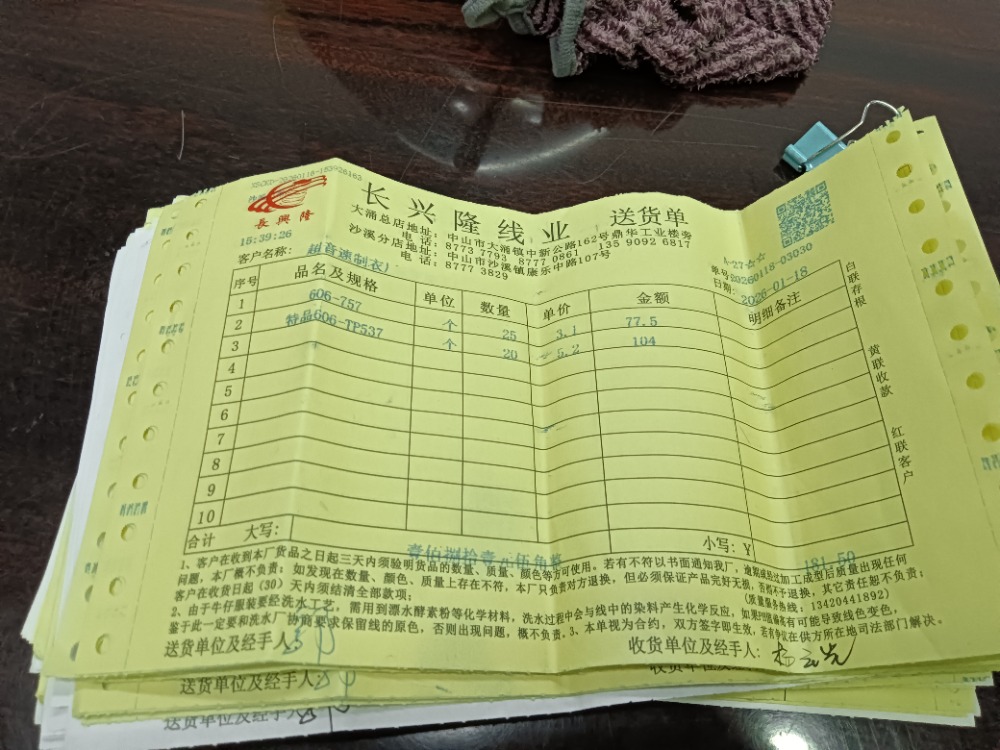 长興隆
15:39:26
长兴隆线业 送货单
大涌总店地址：中山市大涌镇中新公路162号鼎华工业楼旁
电话：8773 7793 8777 0861 135 9092 6817
沙溪分店地址：中山市沙溪镇康乐中路107号
电话：8777 3829
A-27☆☆
单号20260118-03030
客户名称：超音速制衣
日期：2026-01-18
序号 品名及规格 单位 数量 单价 金额 明细备注
1 606-757 个 25 3.1 77.5
2 特品606-TP537 个 20 5.2 104
3
4
5
6
7
8
9
10
合计 大写：壹佰捌拾壹元伍角整 小写：¥ 181.50
白联存根
黄联收款
红联客户
1、客户在收到本厂货品之日起三天内须验明货品的数量、质量、颜色等方可使用。若有不符以书面通知我厂，逾期或经过加工成型后质量出现任何
问题，本厂概不负责；如发现在数量、颜色、质量上存在不符，本厂只负责对方退换，但必须保证产品完好无损，否则不予退换，其它责任恕不负责；
客户在收货日起（30）天内须结清全部款项； （质量服务热线：13420441892）
2、由于牛仔服装要经洗水工艺，需用到漂水酵素粉等化学材料，洗水过程中会与线中的染料产生化学反应，如果有可能导致线色变色，
鉴于此一定要和洗水厂协商要求保留线的原色，否则出现问题，概不负责。3、本单视为合约，双方签字即生效，若有争议在供方所在地司法部门解决。
送货单位及经手人：
收货单位及经手人：杨云光
送货单位及经手人：
收货单位及经手人：
送货单位及经手人：